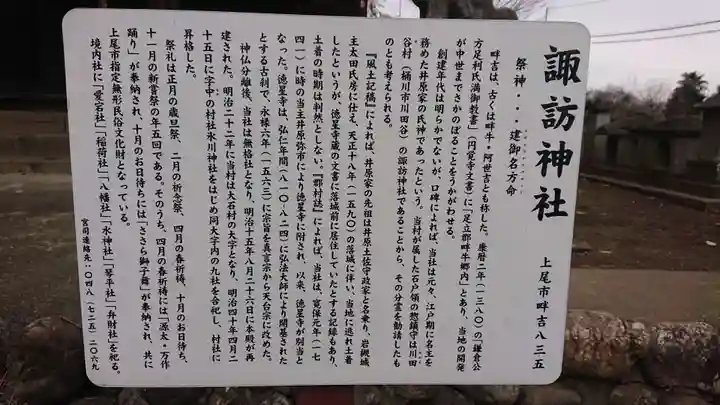 諏訪神社
上尾市畔吉八三五
祭神・・・建御名方命
畔吉は、古くは畔牛・阿世吉とも称した。康暦二年(一三八〇)の「鎌倉公
方足利氏満御教書」(円覚寺文書)に「足立郡畔牛郷内」とあり、当地の開発
が中世までさかのぼることをうかがわせる。
創建年代は明らかでないが、口碑によれば、当社は元々、江戸期に名主を
務めた井原家の氏神であったという。当村が属した石戸領の惣鎮守は川田
谷村(桶川市川田谷)の諏訪神社であることから、その分霊を勧請したも
のとも考えられる。
『風土記稿』によれば、井原家の先祖は井原土佐守政家と名乗り、岩槻城
主太田氏房に仕え、天正十八年(一五九〇)の落城に伴い、当地に逃れ土着
したというが、徳星寺蔵の文書に落城前に居住していたとする記録もあり、
土着の時期は判然としない。『郡村誌』によれば、当社は、寛保元年(一七
四一)に時の当主井原弥市により徳星寺に附され、以来、徳星寺が別当と
なった。徳星寺は、弘仁年間(八一〇-八二四)に弘法大師により開基された
とする古刹で、永禄六年(一五六三)に宗旨を真言宗から天台宗に改めた。
神仏分離後、当社は無格社となり、明治十五年八月二十六日に本殿が再
建された。明治二十二年に当村は大石村の大字となり、明治四十年四月二
十五日に字中の村社氷川神社をはじめ同大字内の九社を合祀し、村社に
昇格した。
祭礼は正月の歳旦祭、二月の祈念祭、四月の春祈祷、十月のお日待ち、
十一月の新嘗祭の年五回である。そのうち、四月の春祈祷には「源太・万作
踊り」が奉納され、十月のお日待ちには「ささら獅子舞」が奉納され、共に
上尾市指定無形民俗文化財となっている。
境内社に「愛宕社」「稲荷社」「八幡社」「水神社」「琴平社」「弁財社」を祀る。
宮司連絡先・〇四八(七二五)二〇六九